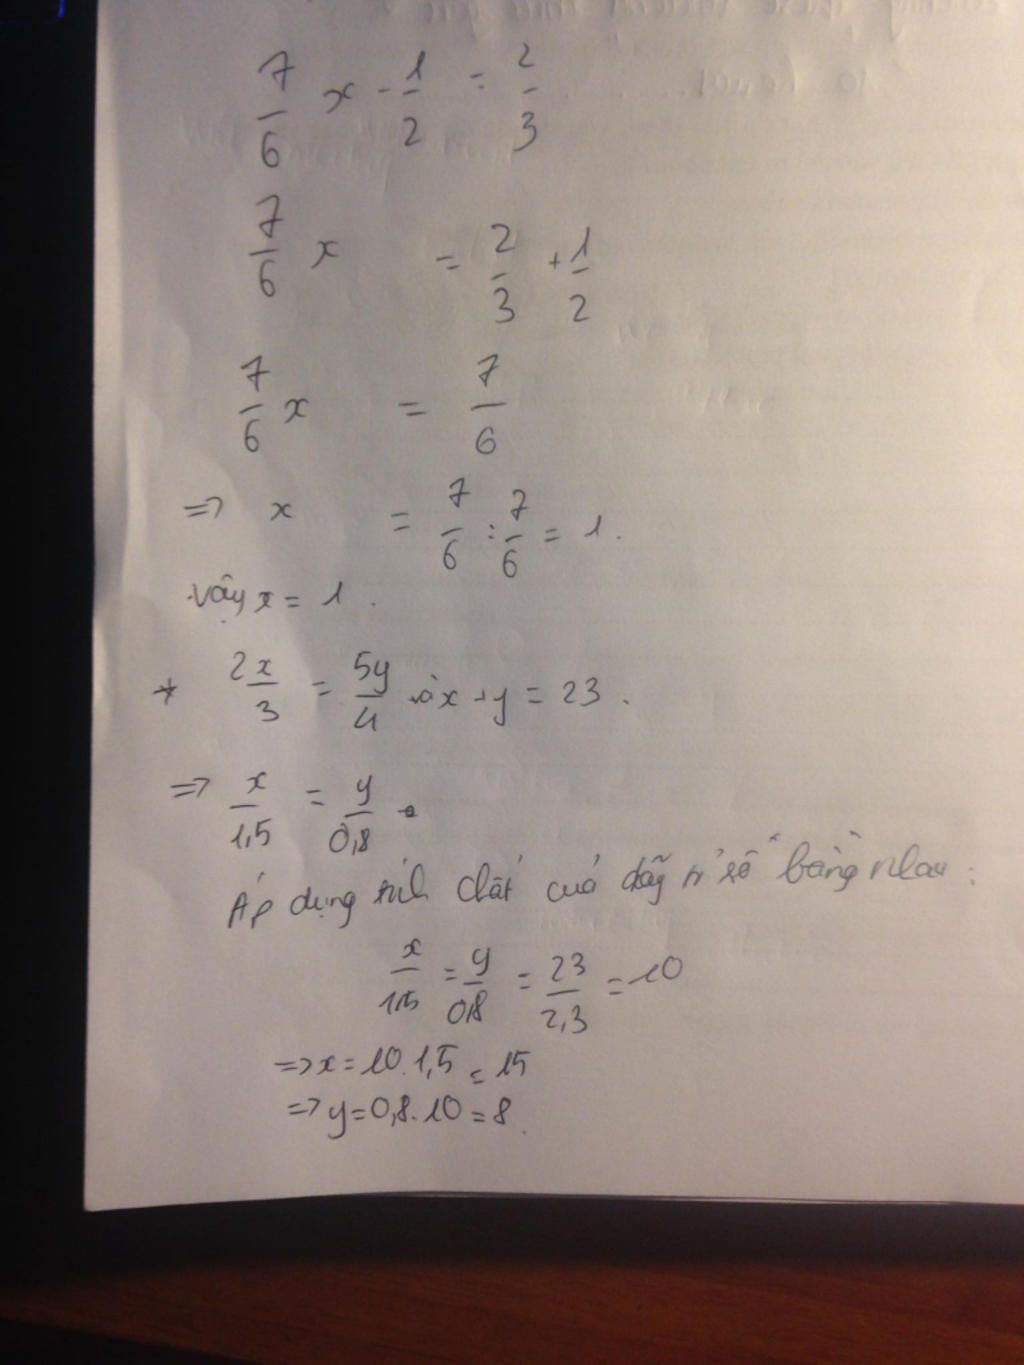 7/6 x - 1/2 = 2/3
7/6 x = 2/3 + 1/2
7/6 x = 7/6
=> x = 7/6 : 7/6 = 1.
Vậy x = 1.
* 2x/3 = 5y/4 và x + y = 23.
=> x/1,5 = y/0,8
Áp dụng tính chất của dãy tỉ số bằng nhau :
x/1,5 = y/0,8 = 23/2,3 = 10
=> x = 10.1,5 = 15
=> y = 0,8.10 = 8.